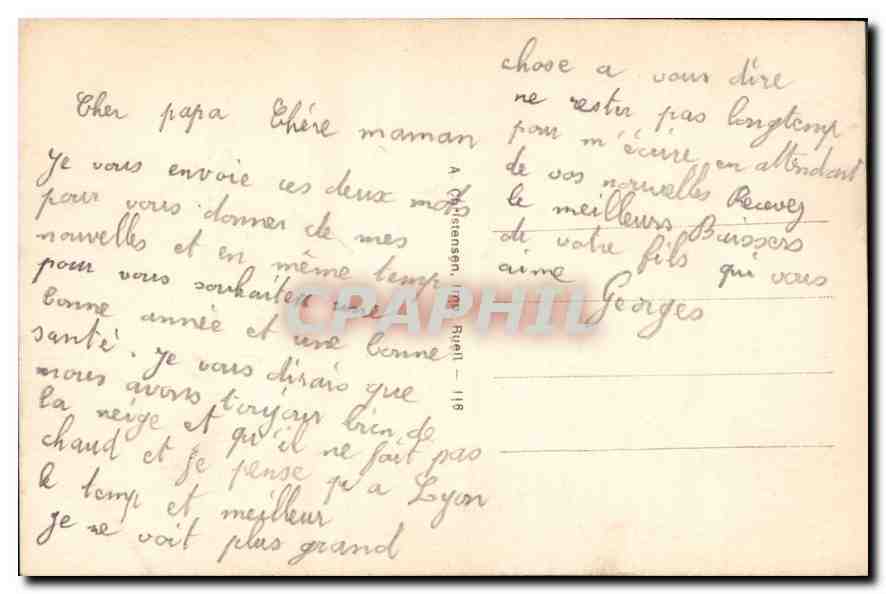 Cher papa Chére maman
Je vous envoie ces deux mots
pour vous donner de mes
nouvelles et en même temp
pour vous souhaiter une
bonne année et une bonne
santé. Je vous dirais que
nous avons toujour bien de
la neige et qu'il ne fait pas
chaud et je pense qu a Lyon
le temp et meilleur
je ne voit plus grand
chose a vous dire
ne rester pas longtemp
pour m'écrire en attendant
de vos nouvelles Recevez
le meilleurs Baissers
de votre fils qui vous
aime
Georges
A. Christensen, Imp. Rueil — 116
CPAPHIL